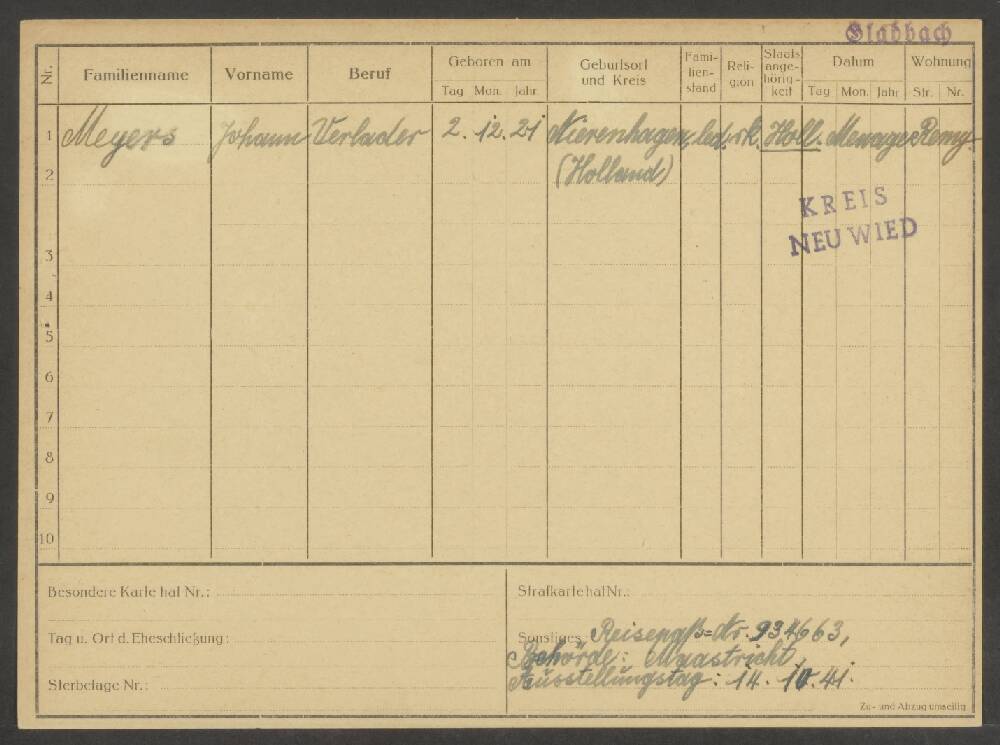 Gladbach
Nr. Familienname Vorname Beruf Geboren am Geburtsort und Kreis Fami-lien-stand Reli-gion Staats-ange-hörig-keit Datum Wohnung
Tag Mon. Jahr Tag Mon. Jahr Str. Nr.
1 Meyers Johann Verlader 2. 12. 21 Nierenhagen, led. rk. Holl. Menage Remy
2 (Holland)
KREIS
NEUWIED
3
4
5
6
7
8
9
10
Besondere Karte hat Nr.: Strafkarte hat Nr.:
Tag u. Ort d. Eheschließung: Sonstiges: Reisepaß-Nr. 934663,
Behörde: Maastricht,
Sterbetage Nr.: Ausstellungstag: 14. 10. 41.
Zu- und Abzug umseitig